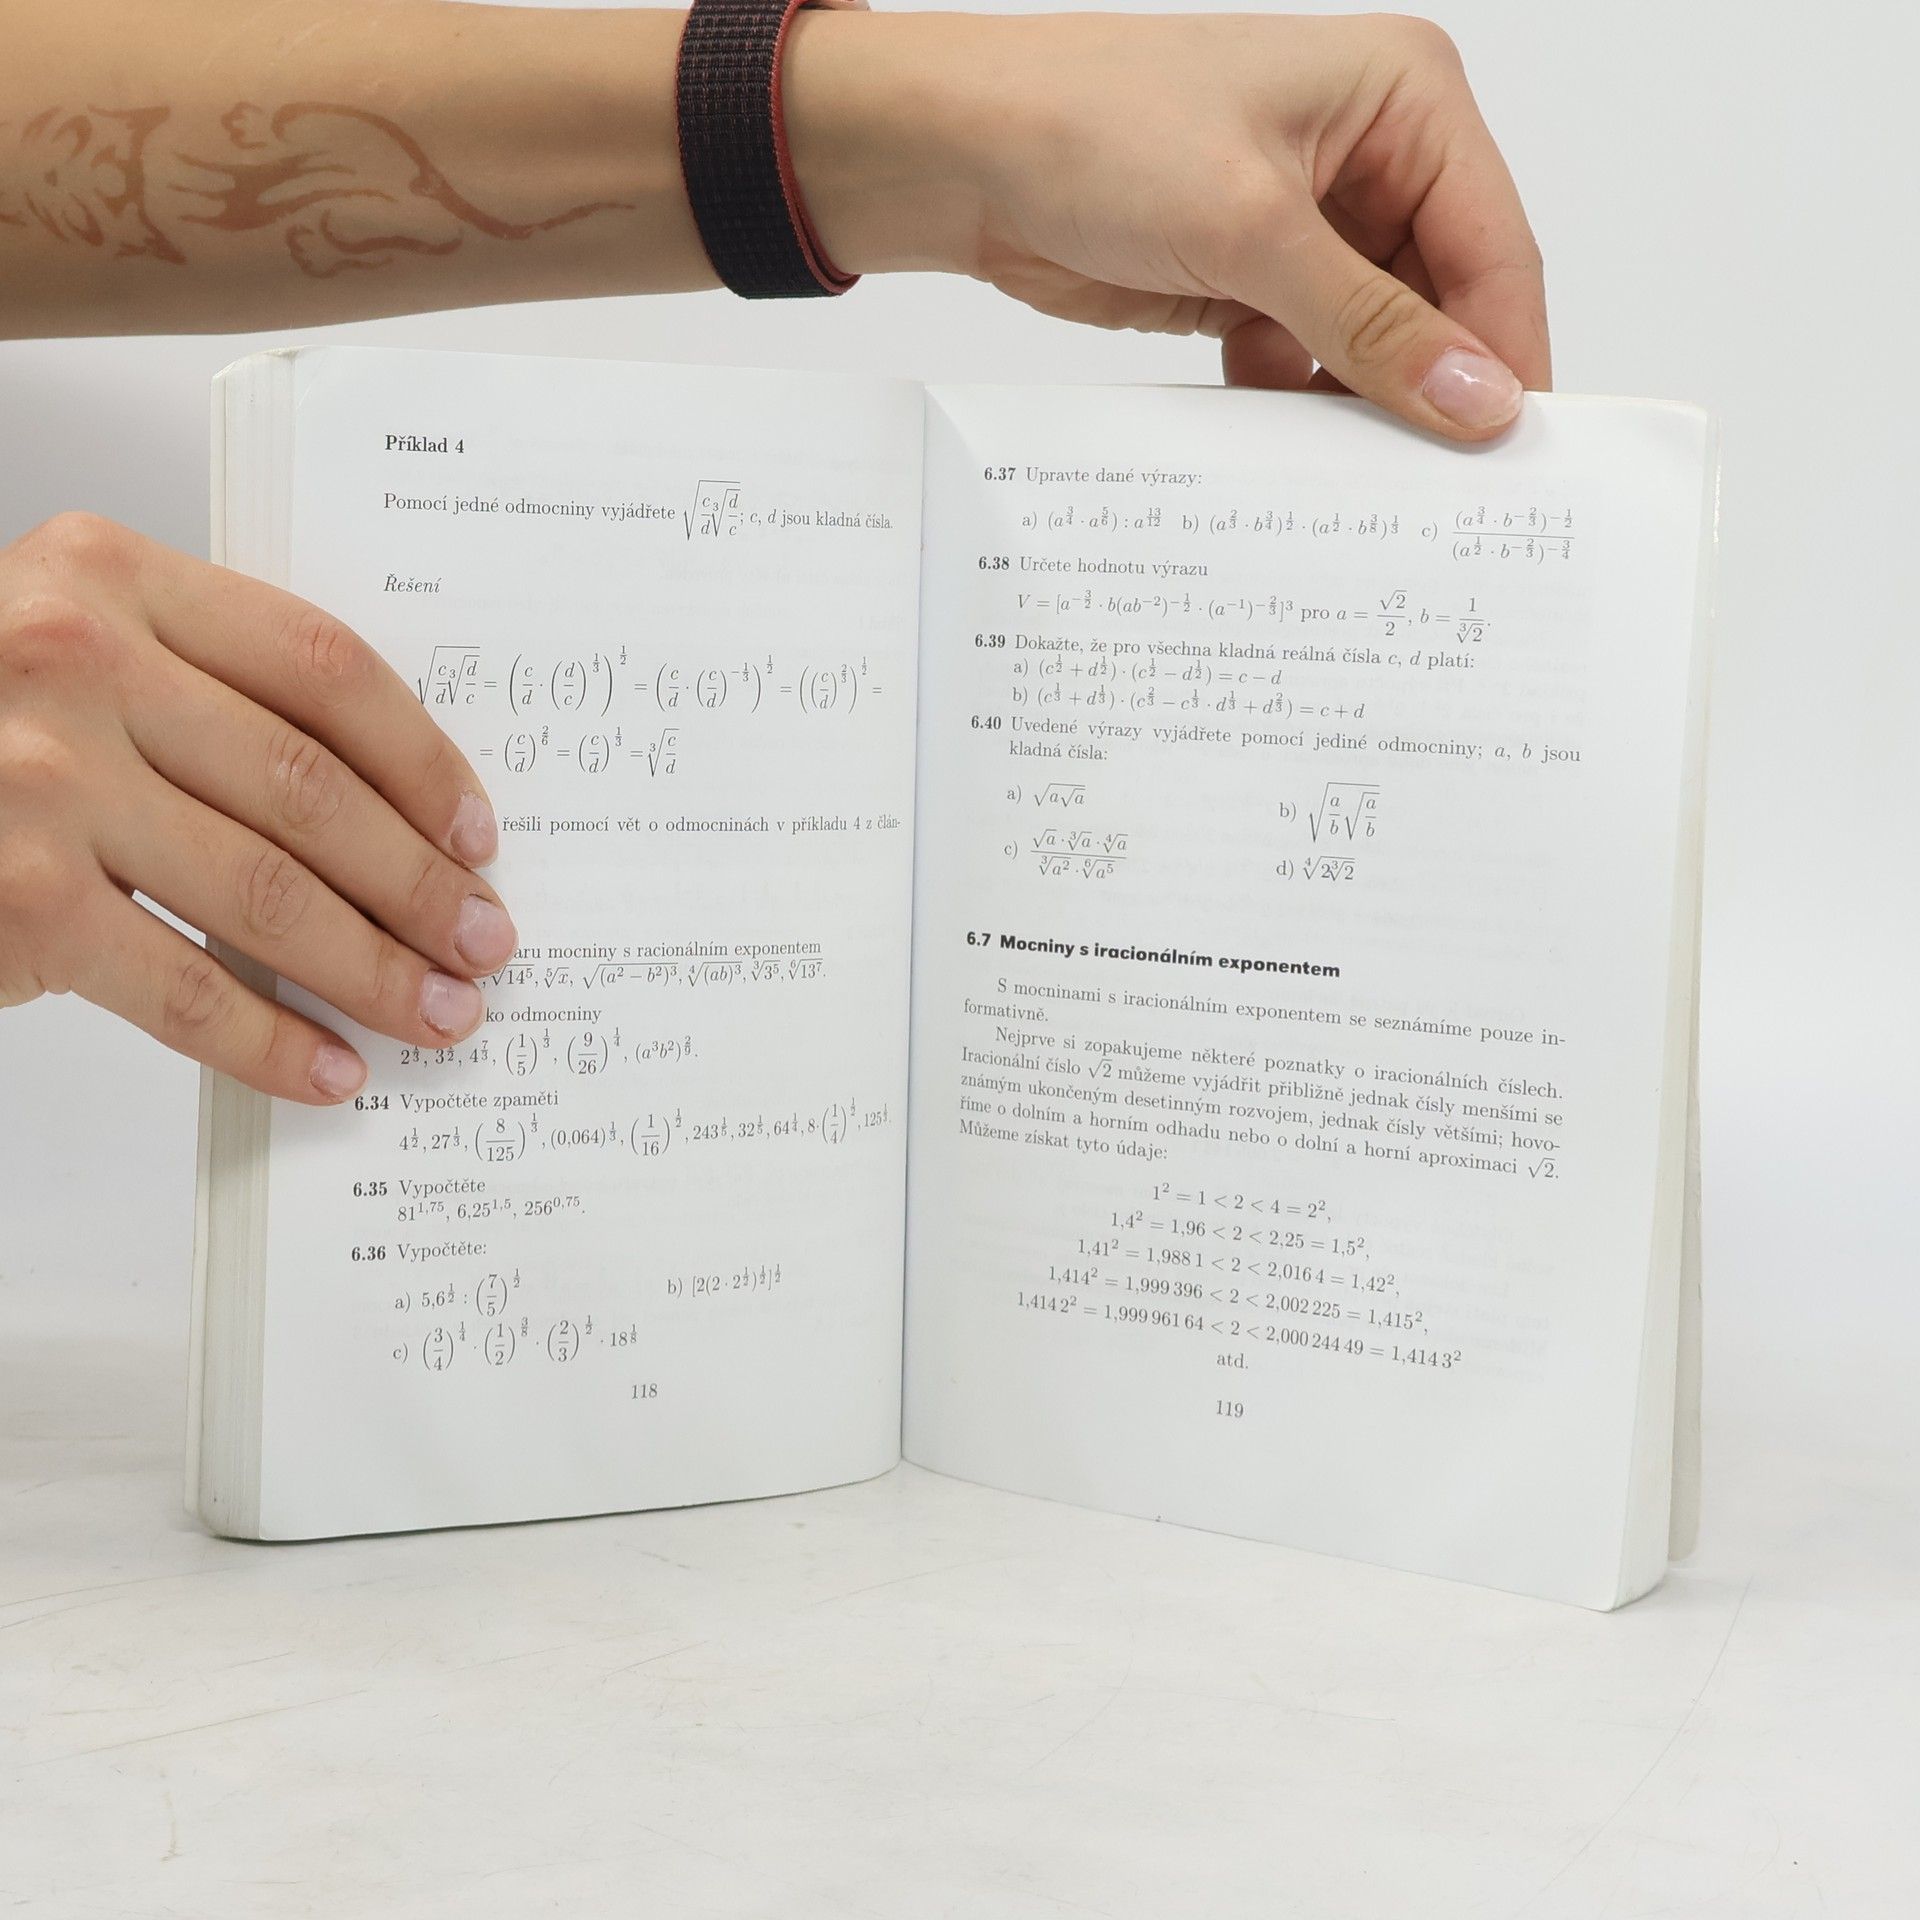 Příklad 4
Pomocí jedné odmocniny vyjádřete $\sqrt{\frac{c}{d}\sqrt[3]{\frac{d}{c}}}$; c, d jsou kladná čísla.
Řešení
$\sqrt{\frac{c}{d}\sqrt[3]{\frac{d}{c}}} = \left(\frac{c}{d}\cdot\left(\frac{d}{c}\right)^{\frac{1}{3}}\right)^{\frac{1}{2}} = \left(\frac{c}{d}\cdot\left(\frac{c}{d}\right)^{-\frac{1}{3}}\right)^{\frac{1}{2}} = \left(\left(\frac{c}{d}\right)^{\frac{2}{3}}\right)^{\frac{1}{2}} =$
$= \left(\frac{c}{d}\right)^{\frac{2}{6}} = \left(\frac{c}{d}\right)^{\frac{1}{3}} = \sqrt[3]{\frac{c}{d}}$
řešili pomocí vět o odmocninách v příkladu 4 z člán-
mocniny s racionálním exponentem
$\sqrt{14^5}, \sqrt[5]{x}, \sqrt{(a^2-b^2)^3}, \sqrt[4]{(ab)^3}, \sqrt[3]{3^5}, \sqrt[6]{13^7}.$
odmocniny
$3^{\frac{1}{2}}, 4^{\frac{7}{3}}, \left(\frac{1}{5}\right)^{\frac{1}{3}}, \left(\frac{9}{26}\right)^{\frac{1}{4}}, (a^3b^2)^{\frac{2}{9}}.$
6.34 Vypočtěte zpaměti
$4^{\frac{1}{2}}, 27^{\frac{1}{3}}, \left(\frac{8}{125}\right)^{\frac{1}{3}}, (0,064)^{\frac{1}{3}}, \left(\frac{1}{16}\right)^{\frac{1}{2}}, 243^{\frac{1}{5}}, 32^{\frac{1}{5}}, 64^{\frac{1}{4}}, 8\cdot\left(\frac{1}{4}\right)^{\frac{1}{2}}, 125^{\frac{1}{3}}.$
6.35 Vypočtěte
$81^{1,75}, 6,25^{1,5}, 256^{0,75}.$
6.36 Vypočtěte:
a) $5,6^{\frac{1}{2}} : \left(\frac{7}{5}\right)^{\frac{1}{2}}$ b) $[2(2\cdot 2^{\frac{1}{2}})^{\frac{1}{2}}]^{\frac{1}{2}}$
c) $\left(\frac{3}{4}\right)^{\frac{1}{4}}\cdot\left(\frac{1}{2}\right)^{\frac{3}{8}}\cdot\left(\frac{2}{3}\right)^{\frac{1}{2}}\cdot 18^{\frac{1}{8}}$
118
6.37 Upravte dané výrazy:
a) $(a^{\frac{3}{4}}\cdot a^{\frac{5}{6}}) : a^{\frac{13}{12}}$ b) $(a^{\frac{2}{3}}\cdot b^{\frac{3}{4}})^{\frac{1}{2}}\cdot(a^{\frac{1}{2}}\cdot b^{\frac{3}{8}})^{\frac{1}{3}}$ c) $\frac{(a^{\frac{3}{4}}\cdot b^{-\frac{2}{3}})^{-\frac{1}{2}}}{(a^{\frac{1}{2}}\cdot b^{-\frac{2}{3}})^{-\frac{3}{4}}}$
6.38 Určete hodnotu výrazu
$V = [a^{-\frac{3}{2}}\cdot b(ab^{-2})^{-\frac{1}{2}}\cdot(a^{-1})^{-\frac{2}{3}}]^3$ pro $a = \frac{\sqrt{2}}{2}, b = \frac{1}{\sqrt[3]{2}}.$
6.39 Dokažte, že pro všechna kladná reálná čísla c, d platí:
a) $(c^{\frac{1}{2}}+d^{\frac{1}{2}})\cdot(c^{\frac{1}{2}}-d^{\frac{1}{2}}) = c-d$
b) $(c^{\frac{1}{3}}+d^{\frac{1}{3}})\cdot(c^{\frac{2}{3}}-c^{\frac{1}{3}}\cdot d^{\frac{1}{3}}+d^{\frac{2}{3}}) = c+d$
6.40 Uvedené výrazy vyjádřete pomocí jediné odmocniny; a, b jsou
kladná čísla:
a) $\sqrt{a\sqrt{a}}$ b) $\sqrt{\frac{a}{b}\sqrt{\frac{a}{b}}}$
c) $\frac{\sqrt{a}\cdot\sqrt[3]{a}\cdot\sqrt[4]{a}}{\sqrt[3]{a^2}\cdot\sqrt[6]{a^5}}$ d) $\sqrt[4]{2\sqrt[3]{2}}$
6.7 Mocniny s iracionálním exponentem
S mocninami s iracionálním exponentem se seznámíme pouze in-
formativně.
Nejprve si zopakujeme některé poznatky o iracionálních číslech.
Iracionální číslo $\sqrt{2}$ můžeme vyjádřit přibližně jednak čísly menšími se
známým ukončeným desetinným rozvojem, jednak čísly většími; hovo-
říme o dolním a horním odhadu nebo o dolní a horní aproximaci $\sqrt{2}$.
Můžeme získat tyto údaje:
$1^2 = 1 < 2 < 4 = 2^2,$
$1,4^2 = 1,96 < 2 < 2,25 = 1,5^2,$
$1,41^2 = 1,988 1 < 2 < 2,016 4 = 1,42^2,$
$1,414^2 = 1,999 396 < 2 < 2,002 225 = 1,415^2,$
$1,414 2^2 = 1,999 961 64 < 2 < 2,000 244 49 = 1,414 3^2$
atd.
119